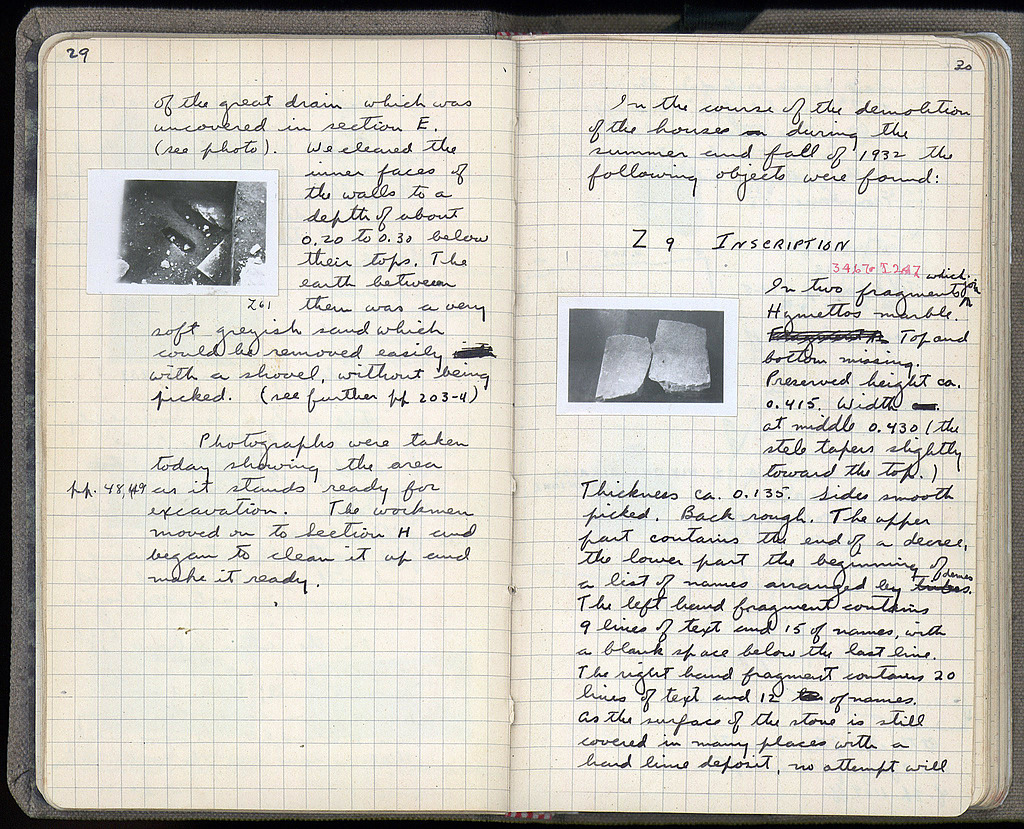 29
of the great drain which was
uncovered in section E.
(see photo). We cleared the
inner faces of
the walls to a
depth of about
0.20 to 0.30 below
their tops. The
earth between
Z61 them was a very
soft greyish sand which
could be removed easily
with a shovel, without being
picked. (see further pp 203-4)
Photographs were taken
today showing the area
pp. 48,49 as it stands ready for
excavation. The workmen
moved on to Section H and
began to clean it up and
make it ready.
30
In the course of the demolition
of the houses during the
summer and fall of 1932 the
following objects were found:
Z 9 INSCRIPTION
3467 I 247
In two fragments which join
Hymettos marble.
Top and
bottom missing.
Preserved height ca.
0.415. Width
at middle 0.430 (the
stele tapers slightly
toward the top.)
Thickness ca. 0.135. Sides smooth
picked. Back rough. The upper
part contains the end of a decree,
the lower part the beginning of
a list of names arranged by demes
The left hand fragment contains
9 lines of text and 15 of names, with
a blank space below the last line.
The right hand fragment contains 20
lines of text and 12 of names.
As the surface of the stone is still
covered in many places with a
hard lime deposit, no attempt will